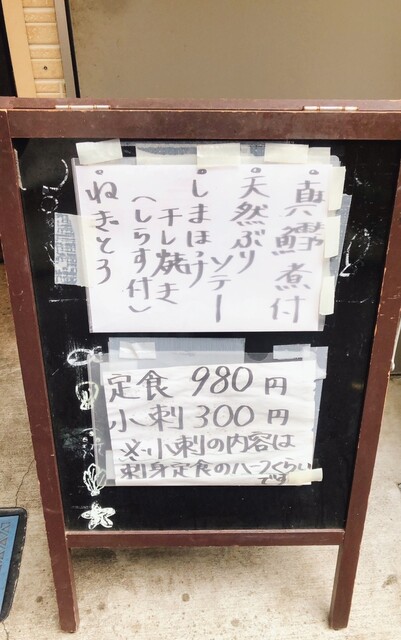 ・真鱈煮付
・天然ぶり
ソテー
・しまほっけ
干し焼き
(しらす付)
・ねぎとろ
定食 980円
小刺 300円
※小刺の内容は
刺身定食のハーフくらい
です